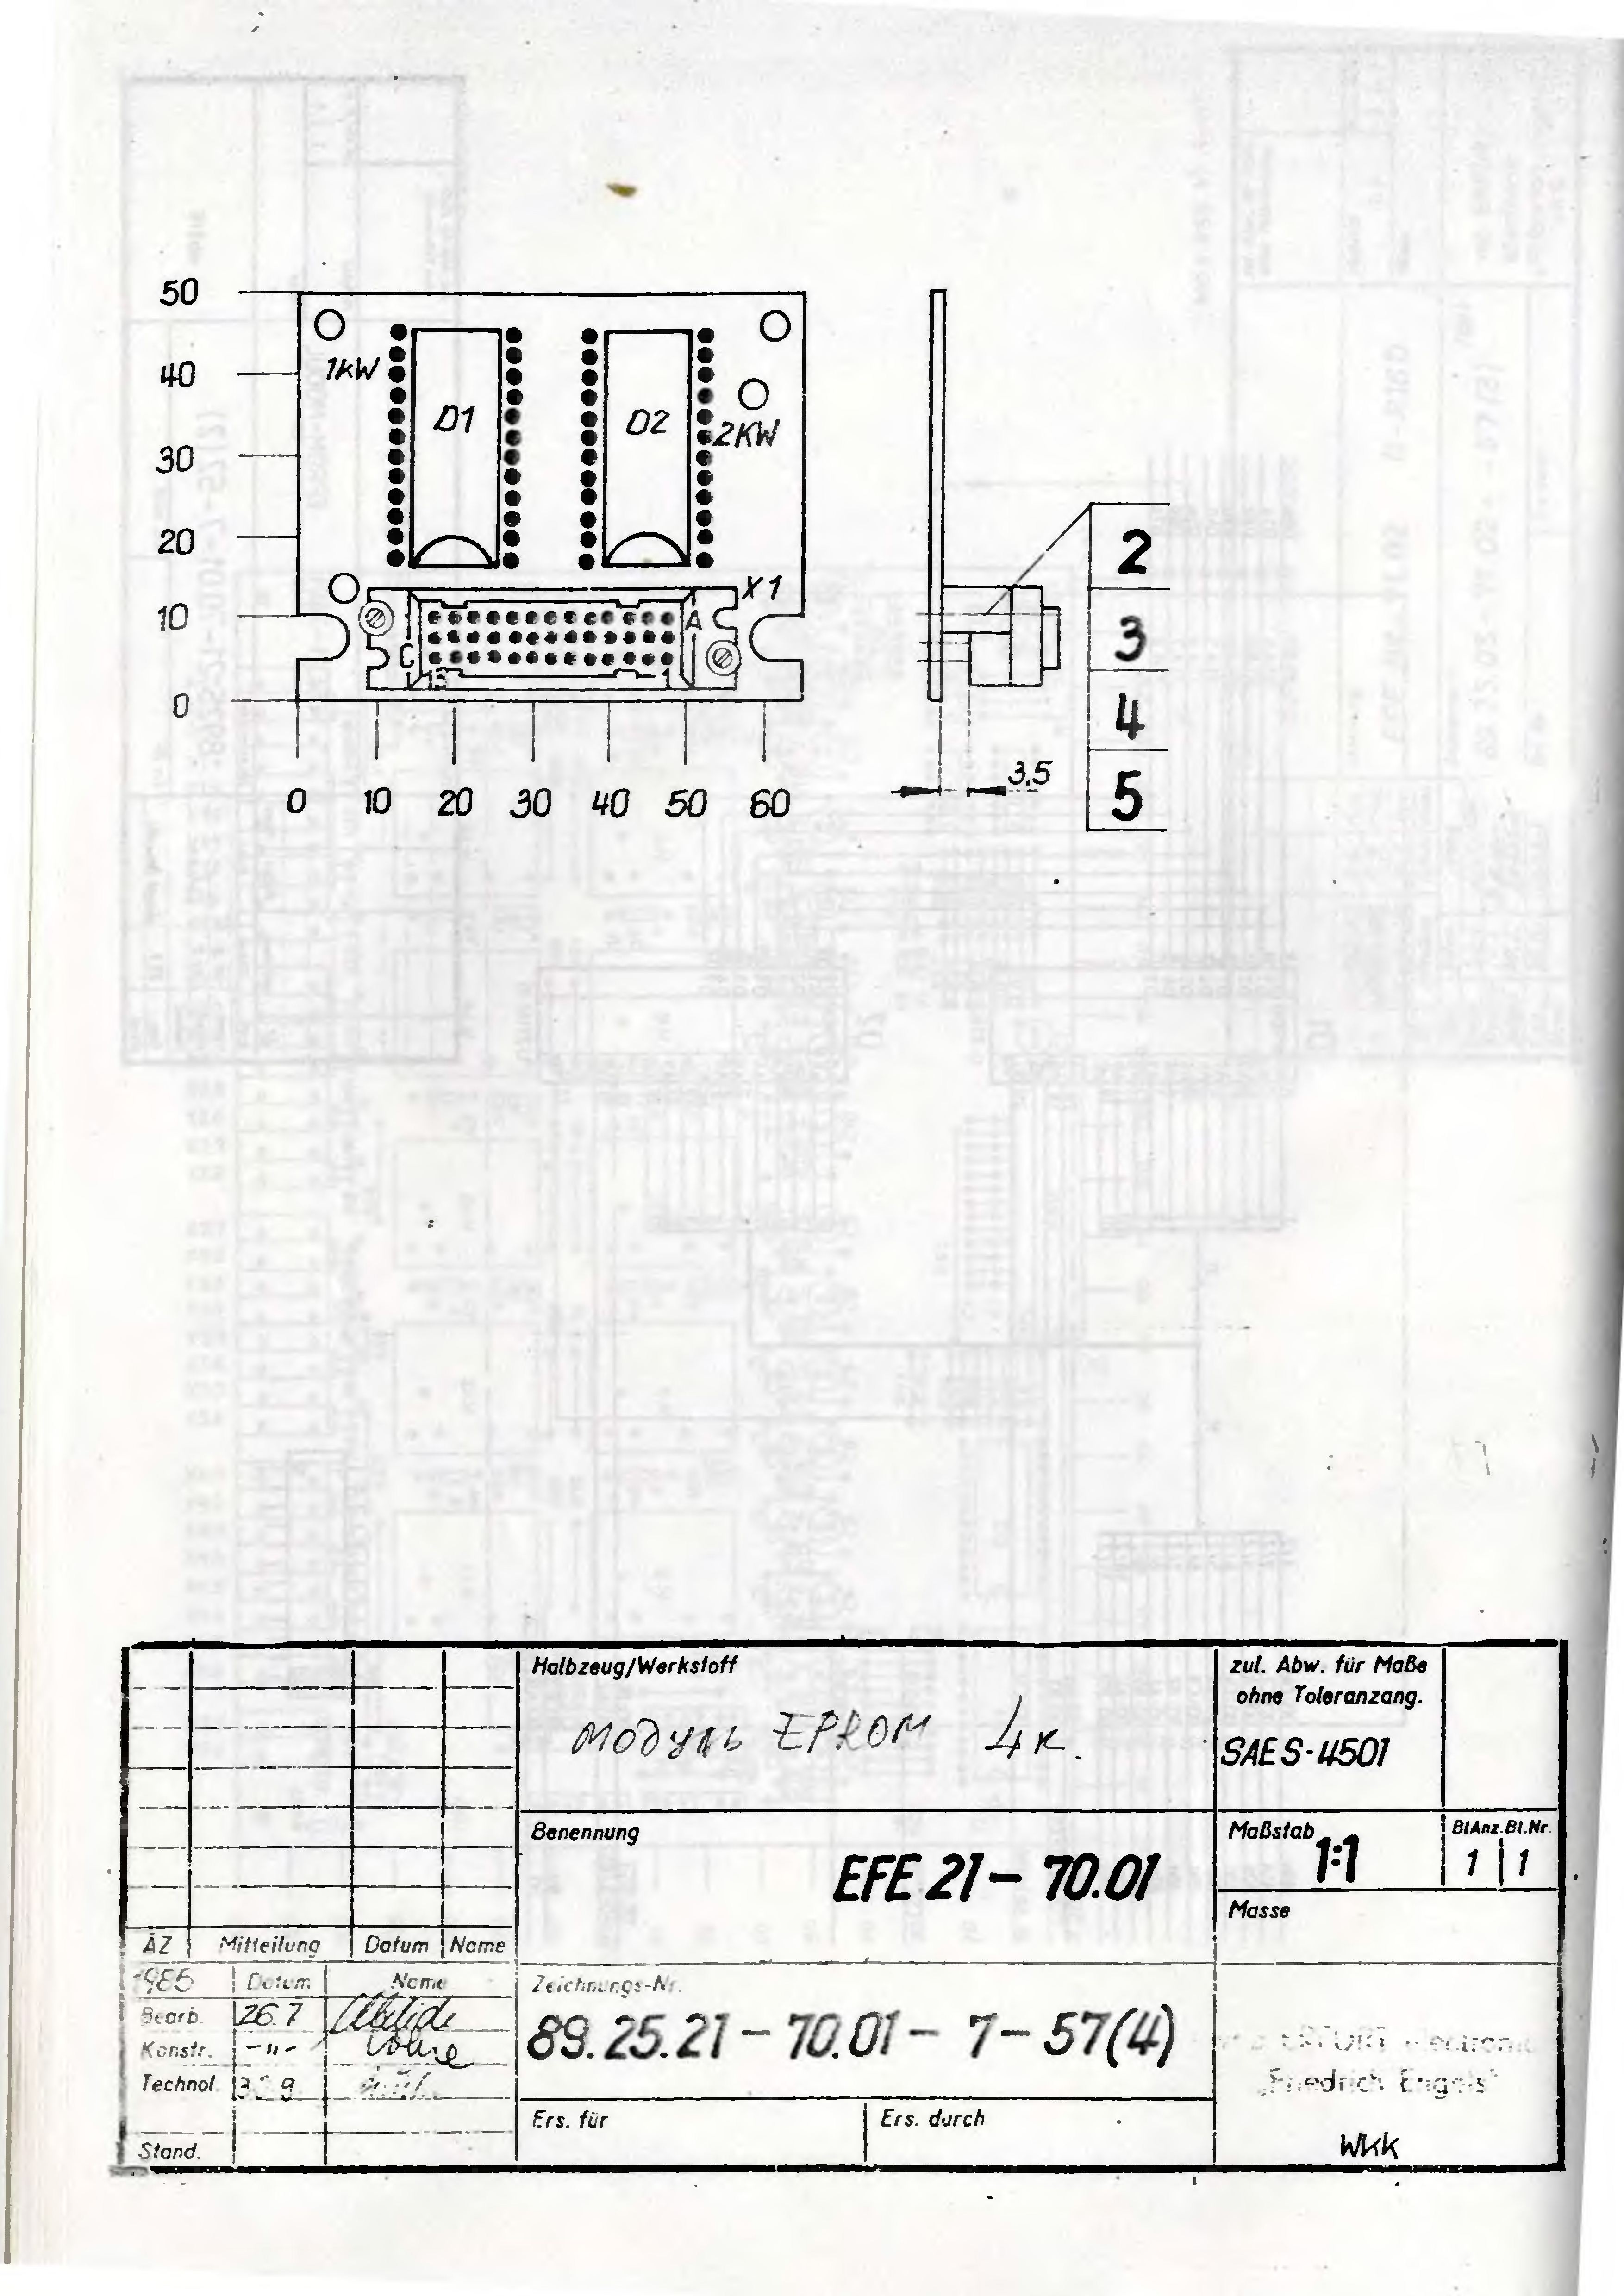 50
40
30
20
10
0
1KW
D1
D2
2KW
X1
A
C
1
0 10 20 30 40 50 60
2
3
4
5
3,5
Halbzeug/Werkstoff
Модуль EPROM 4к.
zul. Abw. für Maße
ohne Toleranzang.
SAES-4501
Benennung
EFE 21 - 70.01
Maßstab
1:1
BlAnz. Bl.Nr.
1 1
Masse
ÄZ Mitteilung Datum Name
1985 Datum Name
Bearb. 26.7
Konstr. -"-
Technol.
Stand.
Zeichnungs-Nr.
89.25.21 - 70.01 - 7 - 57(4)
Ers. für
Ers. durch
ERFURT electronic
"Friedrich Engels"
WKK